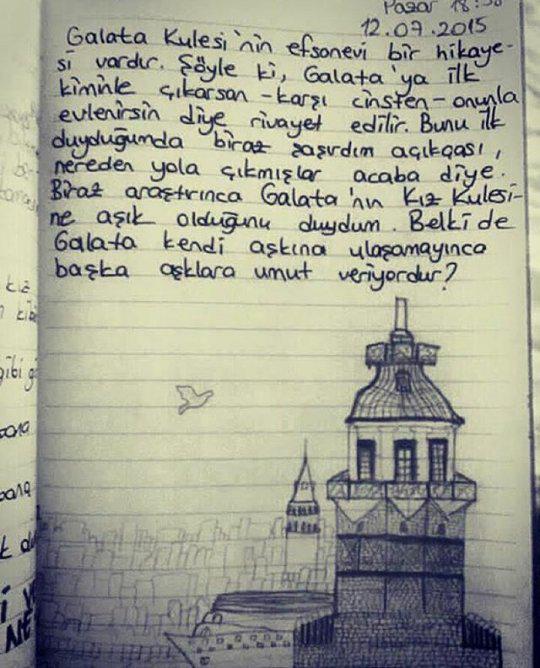 Pazar 18:30
12.07.2015
Galata Kulesi'nin efsonevi bir hikaye-
si vardır. Şöyle ki, Galata'ya ilk
kiminle çıkarsan - karşı cinsten - onunla
evlenirsin diye rivayet edilir. Bunu ilk
duyduğumda biraz şaşırdım açıkçası,
nereden yola çıkmışlar acaba diye.
Biraz araştırınca Galata'nın Kız Kulesi-
ne aşık olduğunu duydum. Belki de
Galata kendi aşkına ulaşamayınca
başka aşklara umut veriyordur?